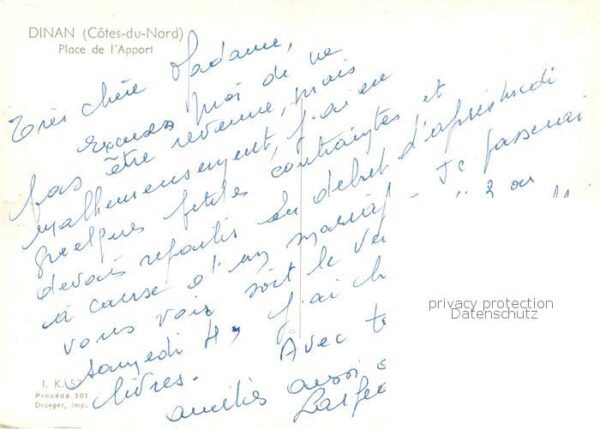 DINAN (Côtes-du-Nord)
Place de l'Apport
Très chère Madame,
Excusez moi de ne
pas être revenue, mais
malheureusement, j'ai eu
quelques petites contraintes et
devais repartir en début d'après midi
à cause d'un mariag
Je passerai
vous voir soit le ve
3 ou
samedi 4, j'ai
livres. Avec
amitiés aussi
privacy protection
Datenschutz
I. K.
Procédé 301
Draeger, imp.